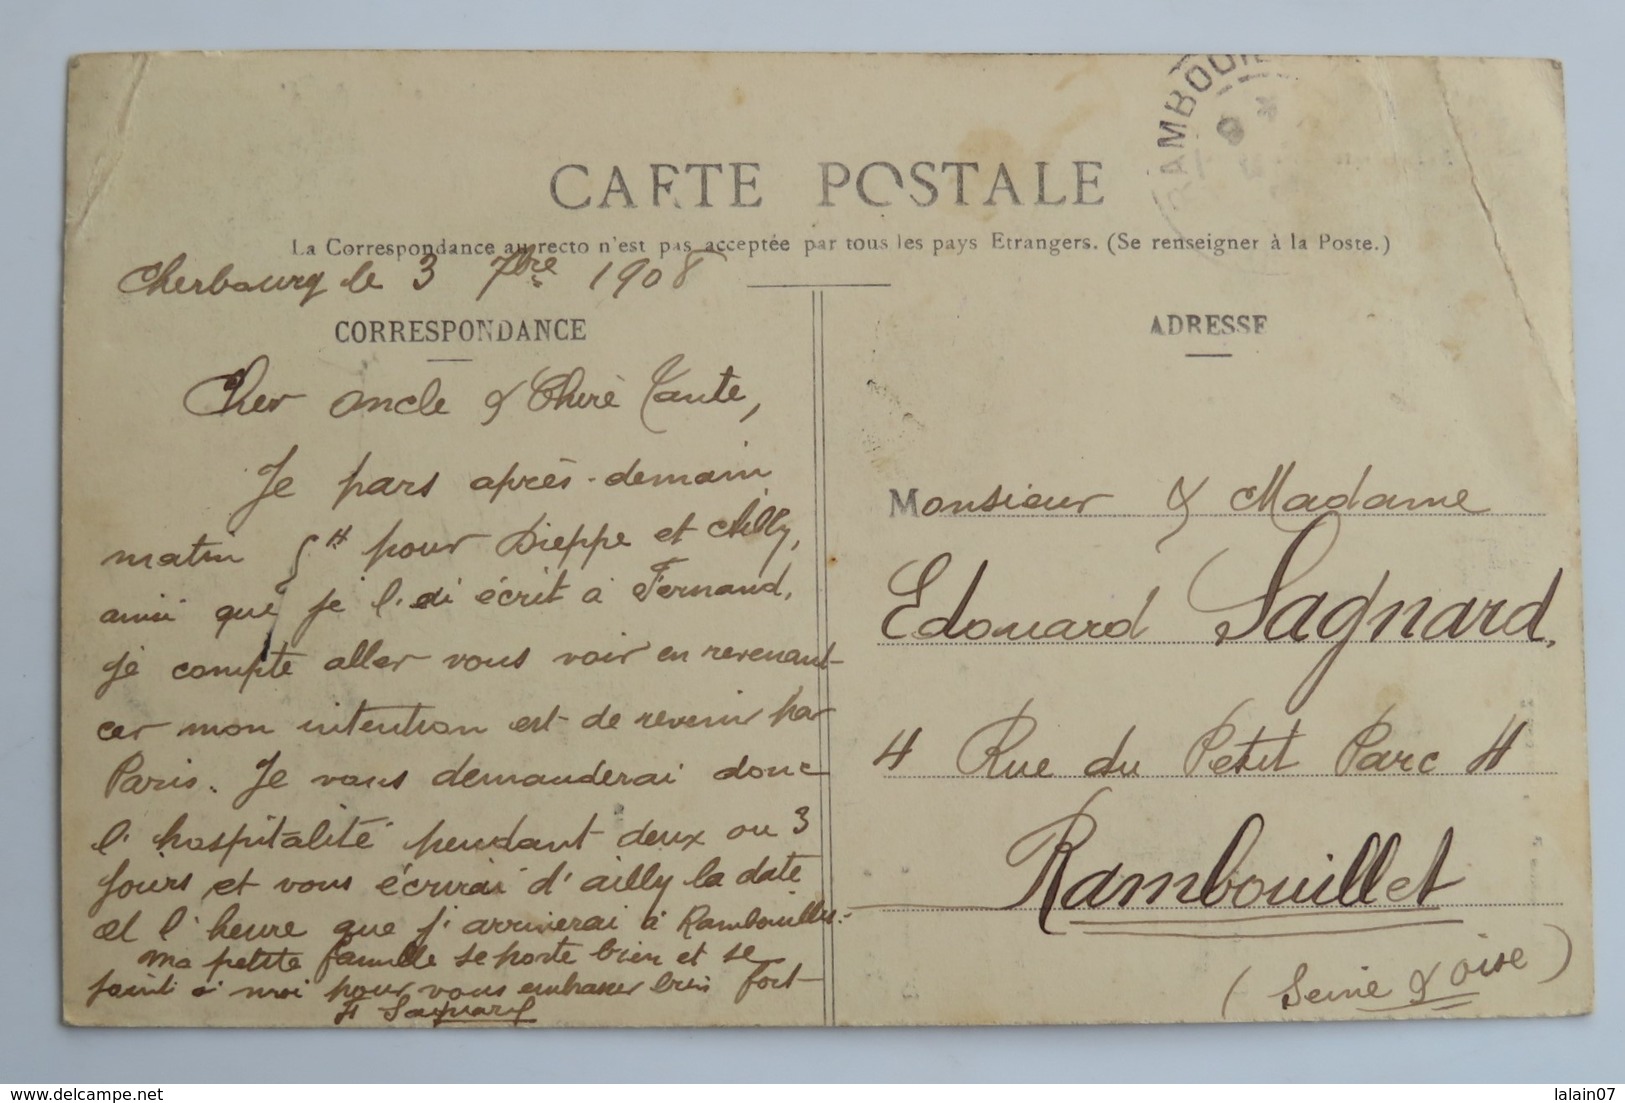 RAMBOUIL
CARTE POSTALE
La Correspondance au recto n'est pas acceptée par tous les pays Etrangers. (Se renseigner à la Poste.)
Cherbourg le 3 7bre 1908
CORRESPONDANCE
Cher Oncle & Chère Tante,
Je pars après-demain
matin pour Dieppe et Ailly,
ainsi que je l'ai écrit à Fernand,
je compte aller vous voir en revenant
car mon intention est de revenir par
Paris. Je vous demanderai donc
l'hospitalité pendant deux ou 3
jours et vous écrirai d'ailly la date
et l'heure que j'arriverai à Rambouillet.
Ma petite famille se porte bien et se
joint à moi pour vous embrasser bien fort
H Sagnard
ADRESSE
Monsieur & Madame
Edouard Sagnard,
4 Rue du Petit Parc 4
Rambouillet
(Seine & Oise)
delcampe.net
lalain07